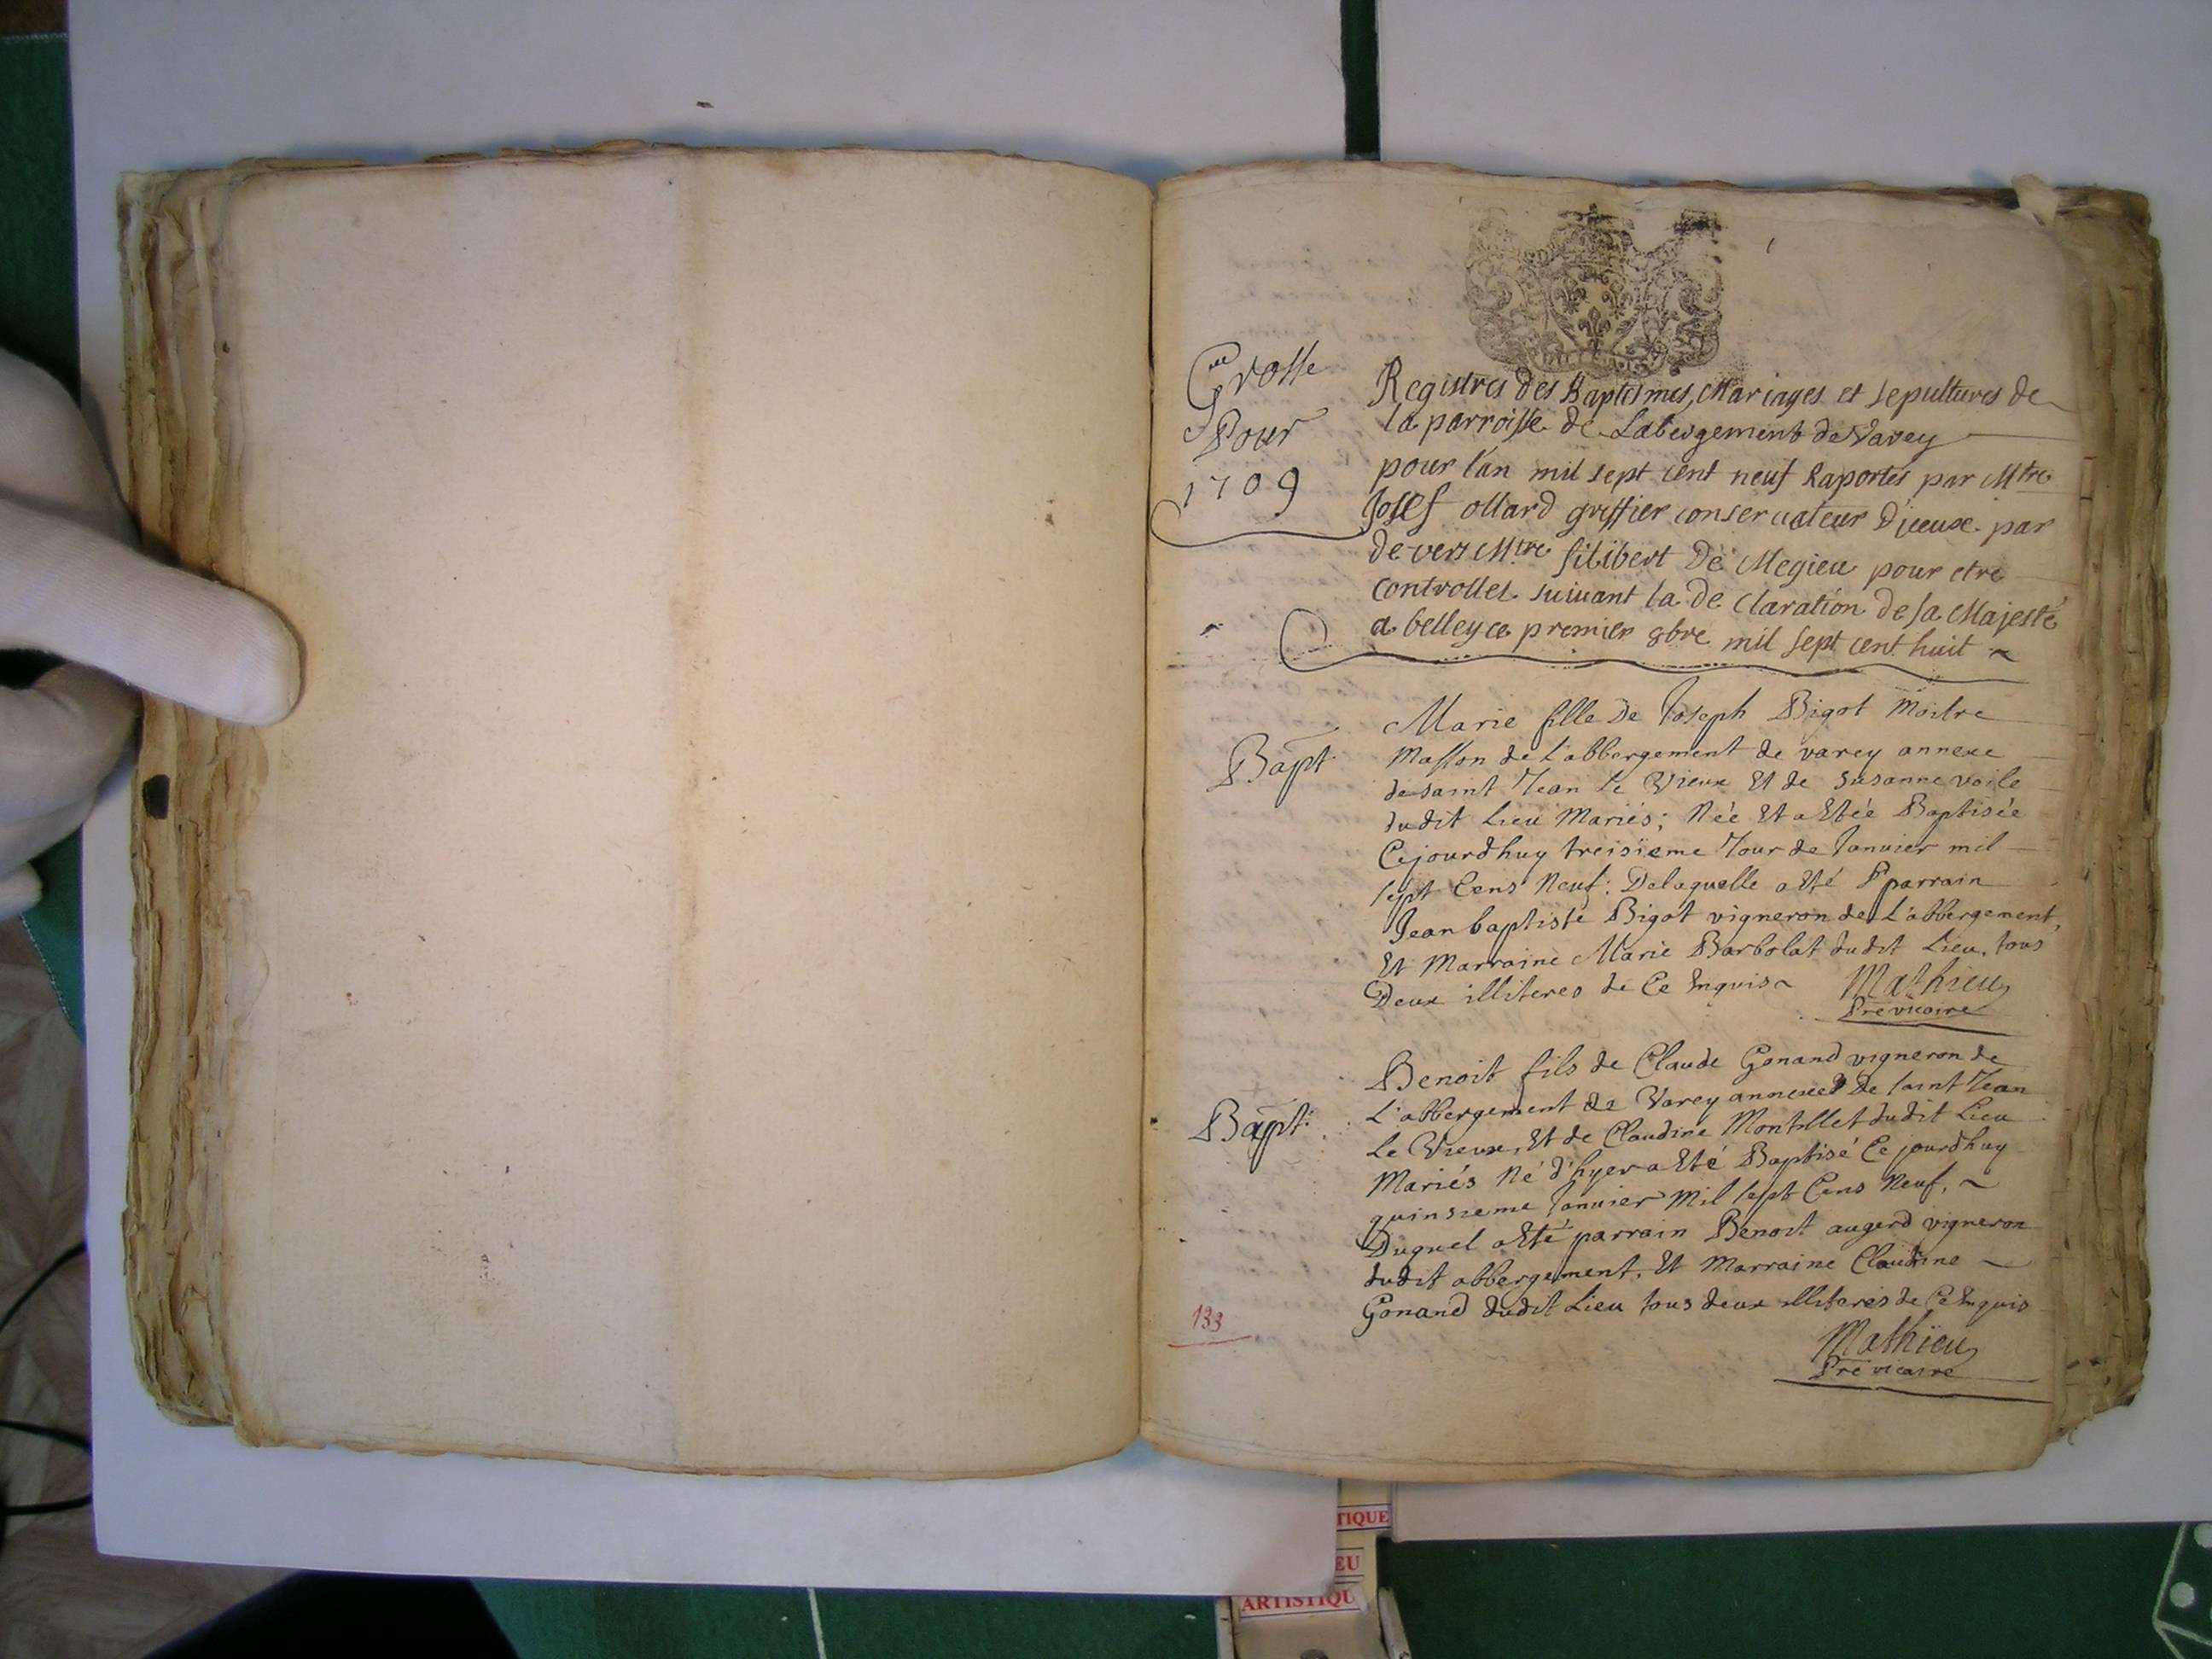 Grosse
Pour
1709
Registres des Baptesmes, Mariages et sepultures de
la parroisse de Labergement de Varey
pour l'an mil sept cent neuf Raportés par Mtre
Josef ollard greffier conservateur d'iceux par
de vers Mtre filibert De Megieu pour etre
controlles suivant la de claration de sa Majesté
a belley ce premier 8bre mil sept cent huit
Bapt
Marie fille de Joseph Bigot Moitre
Masson de L'abbergement de varey annexe
de saint Jean Le Vieux Et de Susanne voile
dudit Lieu Mariés; Née Et a Etée Baptisée
Cejourdhuy treisieme Jour de Janvier mil
sept Cens Neuf: De laquelle a Eté Pparrain
Jean baptiste Bigot vigneron de L'abbergement,
Et Marraine Marie Barbolat dudit Lieu, tous
Deux illiteres de Ce Enquis
Mathieu
Pre vicaire
Bapt:
Benoit fils de Claude Gonand vigneron de
L'abbergement de Varey annexe De saint Jean
Le Vieux, Et de Claudine Montillet dudit Lieu
Mariés Né d'hyer a Eté Baptisé Ce jourdhuy
quinsieme Janvier Mil sept Cens Neuf,
Duquel a Eté parrain Benoit augerd vigneron
dudit abbergement, Et Marraine Claudine
Gonand dudit Lieu tous deux illiterés de Ce Enquis
Mathieu
Pre vicaire
133
TIQUE
EU
ARTISTIQU